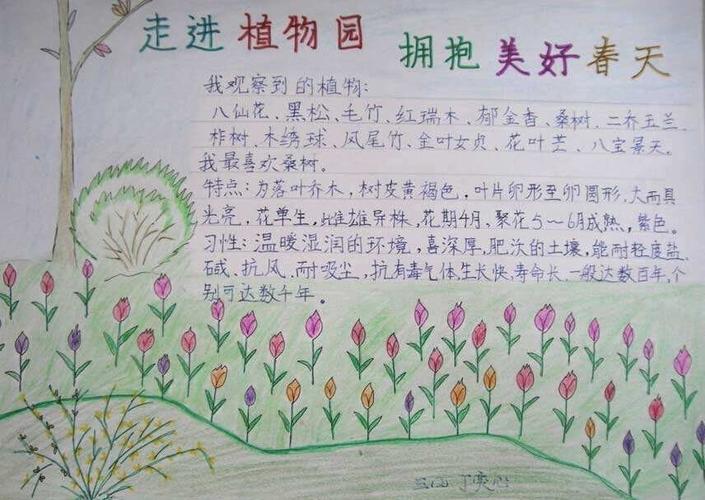 走进植物园 拥抱美好春天
我观察到的植物:
八仙花、黑松、毛竹、红瑞木、郁金香、桑树、二乔玉兰、
柞树、木绣球、凤尾竹、金叶女贞、花叶芒、八宝景天。
我最喜欢桑树。
特点:为落叶乔木,树皮黄褐色,叶片卵形至卵圆形,大而具
光亮,花单生,雌雄异株,花期4月,聚花5~6月成熟,紫色。
习性:温暖湿润的环境,喜深厚,肥沃的土壤,能耐轻度盐
碱、抗风、耐吸尘,抗有毒气体生长快,寿命长,一般达数百年,个
别可达数千年。